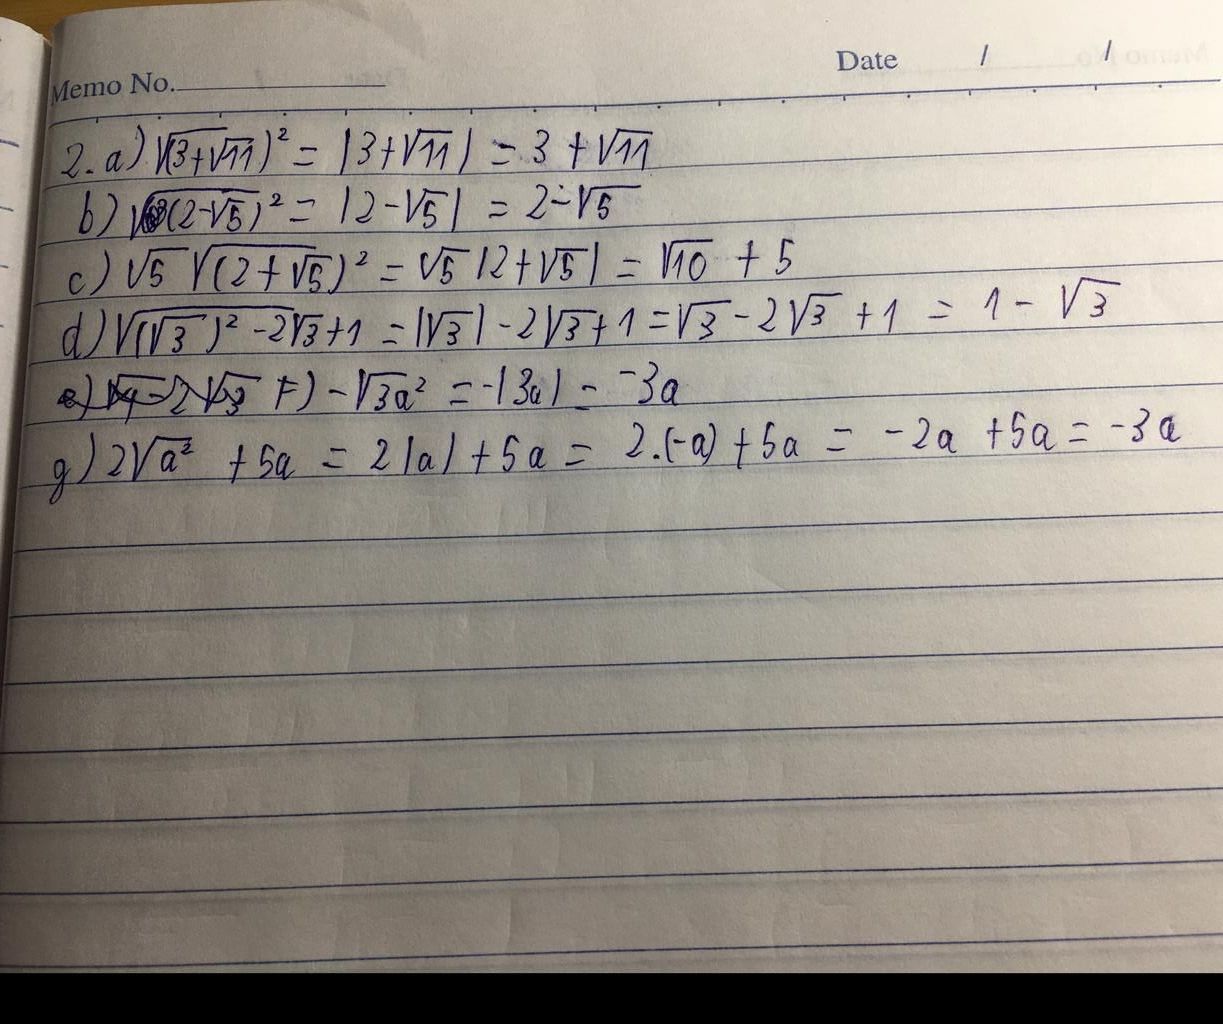 Memo No. Date / /
2. a) √(3+√11)² = |3+√11| = 3 + √11
b) √(2-√5)² = |2-√5| = 2-√5
c) √5 √(2+√5)² = √5 |2+√5| = √10 + 5
d) √(√3)² - 2√3+1 = |√3| - 2√3+1 = √3 - 2√3 + 1 = 1 - √3
F) - √3a² = -|3a| = -3a
g) 2√a² + 5a = 2|a| + 5a = 2.(-a) + 5a = -2a + 5a = -3a